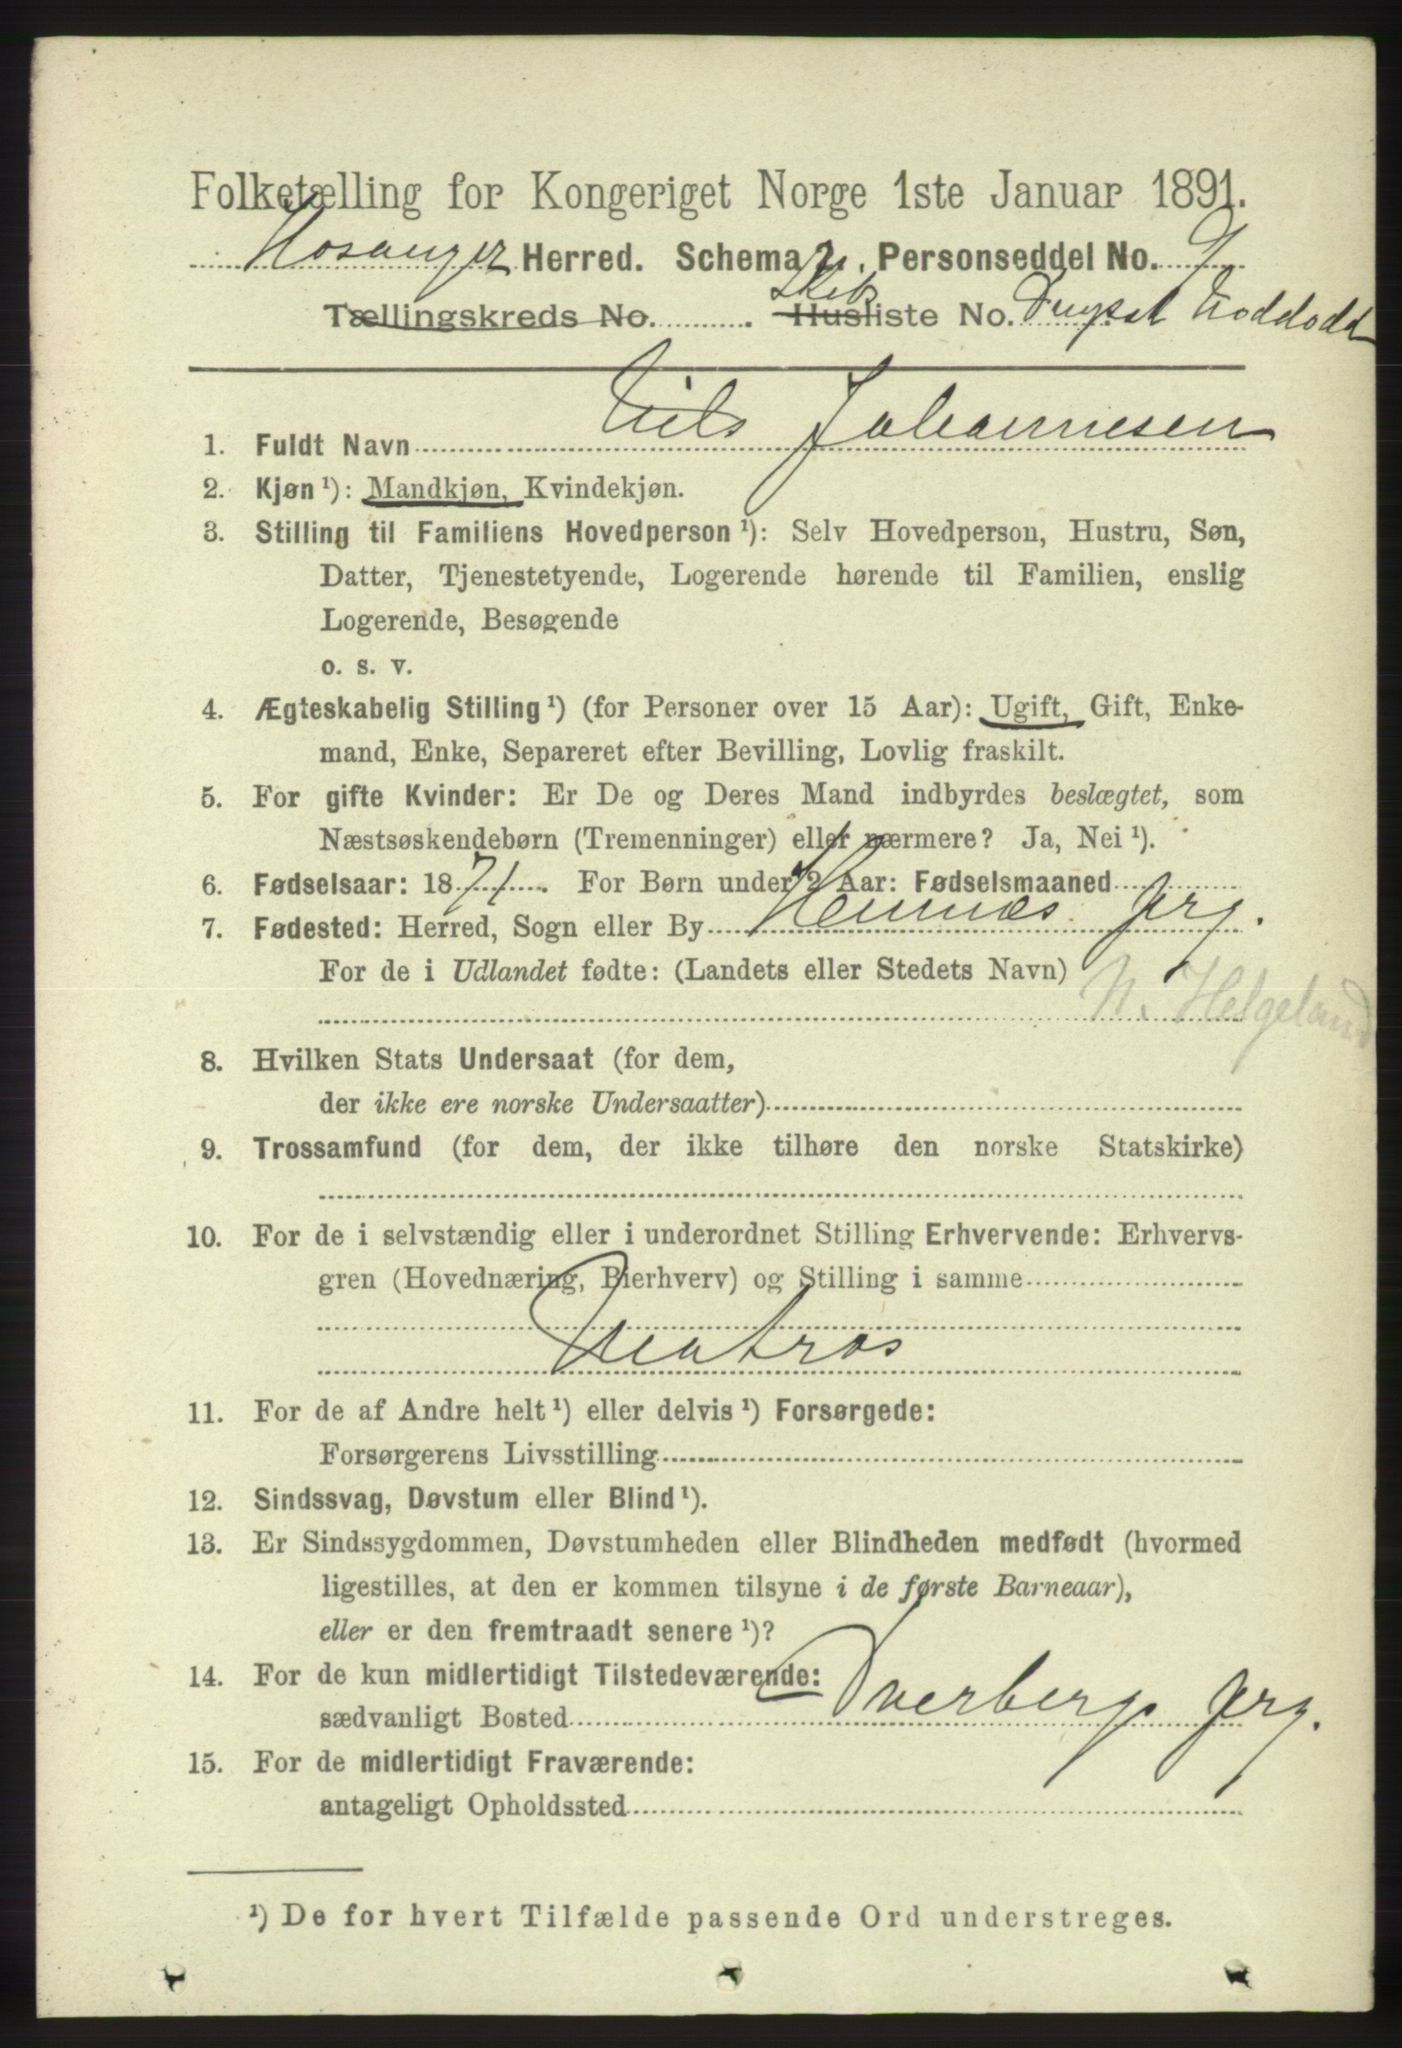 Folketælling for Kongeriget Norge 1ste Januar 1891.
Hosanger Herred. Schema 2. Personseddel No. 9
Tællingskreds No. ......... Skib Husliste No.
1. Fuldt Navn Nils Johannesen
2. Kjøn ¹): Mandkjøn, Kvindekjøn.
3. Stilling til Familiens Hovedperson ¹): Selv Hovedperson, Hustru, Søn,
Datter, Tjenestetyende, Logerende hørende til Familien, enslig
Logerende, Besøgende
o. s. v.
4. Ægteskabelig Stilling ¹) (for Personer over 15 Aar): Ugift, Gift, Enke-
mand, Enke, Separeret efter Bevilling, Lovlig fraskilt.
5. For gifte Kvinder: Er De og Deres Mand indbyrdes beslægtet, som
Næstsøskendebørn (Tremenninger) eller nærmere? Ja, Nei ¹).
6. Fødselsaar: 1871. For Børn under 2 Aar: Fødselsmaaned
7. Fødested: Herred, Sogn eller By Hemnæs Prg.
For de i Udlandet fødte: (Landets eller Stedets Navn)
N. Helgeland
8. Hvilken Stats Undersaat (for dem,
der ikke ere norske Undersaatter)
9. Trossamfund (for dem, der ikke tilhøre den norske Statskirke)
10. For de i selvstændig eller i underordnet Stilling Erhvervende: Erhvervs-
gren (Hovednæring, Bierhverv) og Stilling i samme
Matros
11. For de af Andre helt ¹) eller delvis ¹) Forsørgede:
Forsørgerens Livsstilling
12. Sindssvag, Døvstum eller Blind ¹).
13. Er Sindssygdommen, Døvstumheden eller Blindheden medfødt (hvormed
ligestilles, at den er kommen tilsyne i de første Barneaar),
eller er den fremtraadt senere ¹)?
14. For de kun midlertidigt Tilstedeværende:
sædvanligt Bosted Dverberg Prg.
15. For de midlertidigt Fraværende:
antageligt Opholdssted
¹) De for hvert Tilfælde passende Ord understreges.